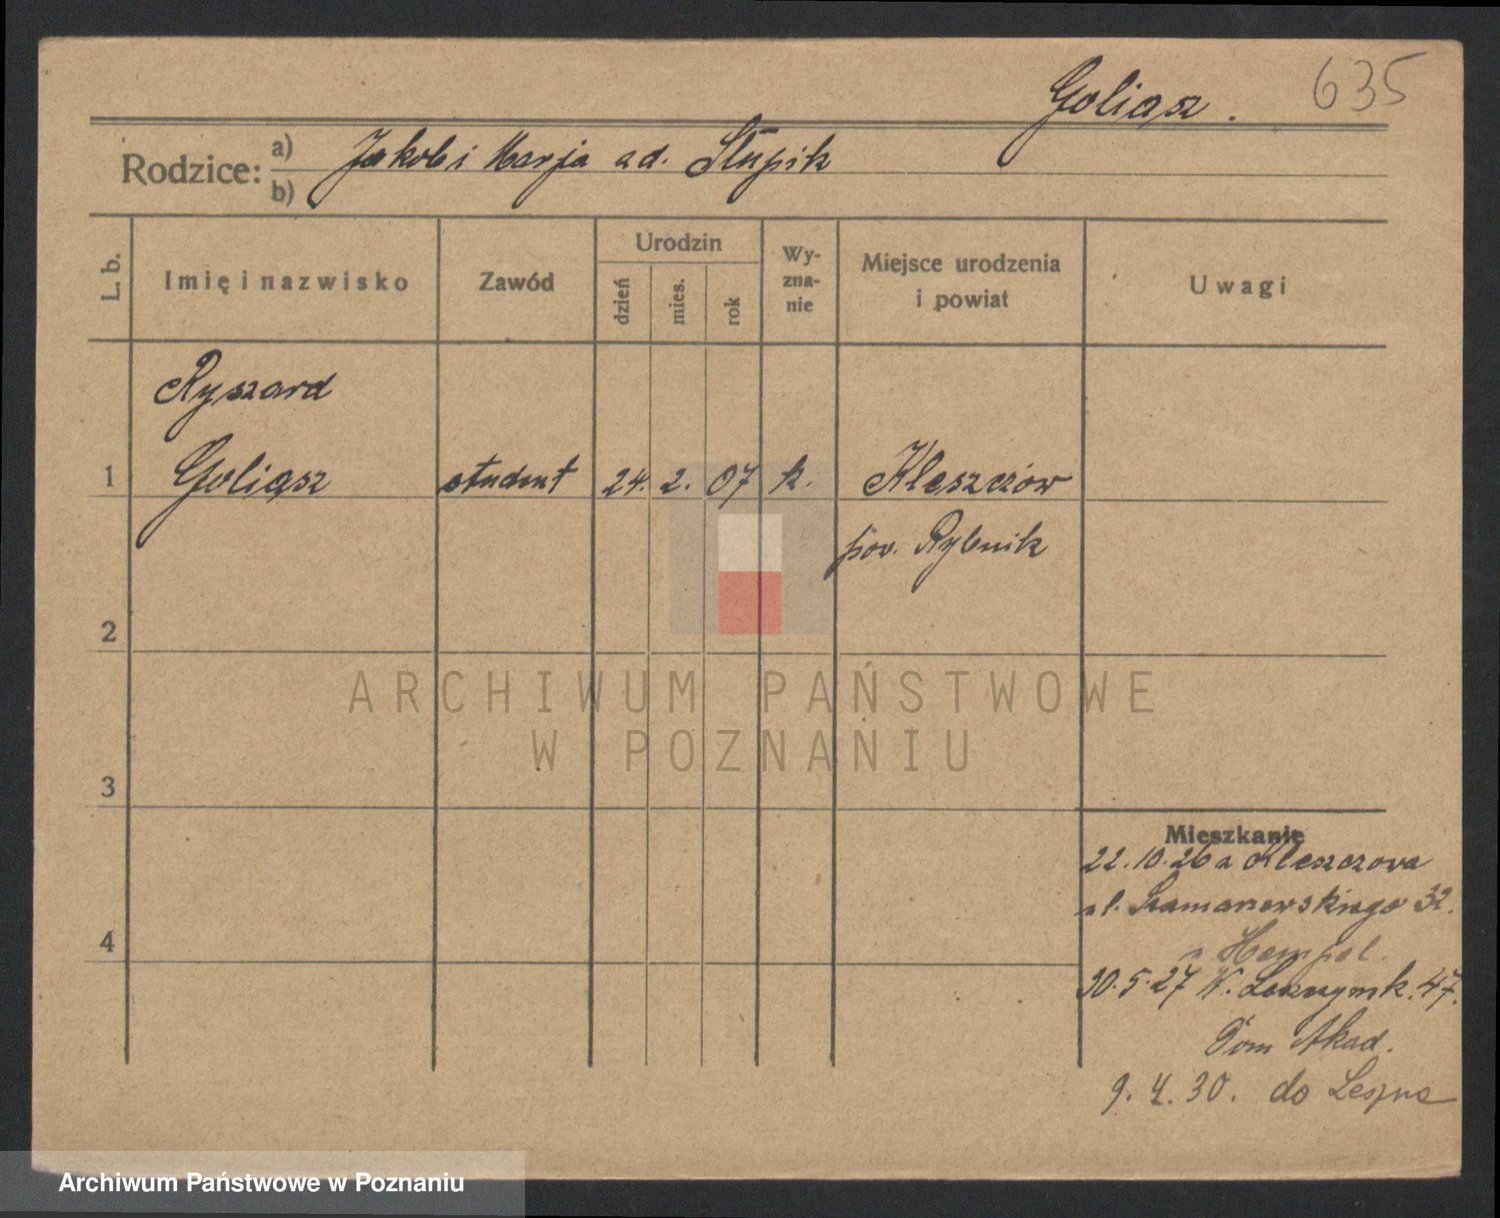 Goliasz. 635
Rodzice: a) Jakob i Marja zd. Słupik
b)
L. b. Imię i nazwisko Zawód Urodzin dzień mies. rok Wyznanie Miejsce urodzenia i powiat Uwagi
Ryszard
1 Goliasz student 24. 2. 07 k. Kleszczów
pow. Rybnik
2
ARCHIWUM PAŃSTWOWE
W POZNANIU
3
Mieszkanie
22.10.26 z Kleszczowa
ul. Szamarzewskiego 32.
u Hempel.
30.5.27 W. Leszczyńsk. 47.
Dom Akad.
9. 4. 30. do Leszna
4
Archiwum Państwowe w Poznaniu